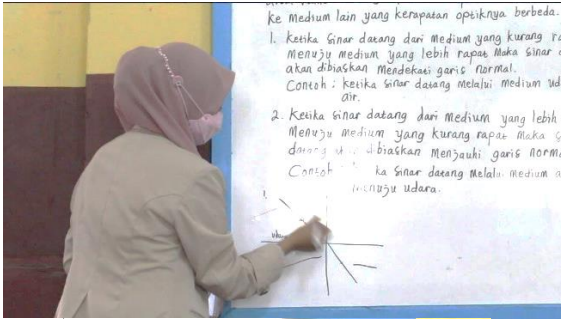 ke medium lain yang kerapatan optiknya berbeda.
1. Ketika sinar datang dari medium yang kurang
menuju medium yang lebih rapat maka sinar
akan dibiaskan mendekati garis normal.
Contoh : ketika sinar datang melalui medium
air.
2. Ketika sinar datang dari medium yang lebih
menuju medium yang kurang rapat maka
dibiaskan menjauhi garis
Contoh ka sinar datang melalui medium
menuju udara.
1.